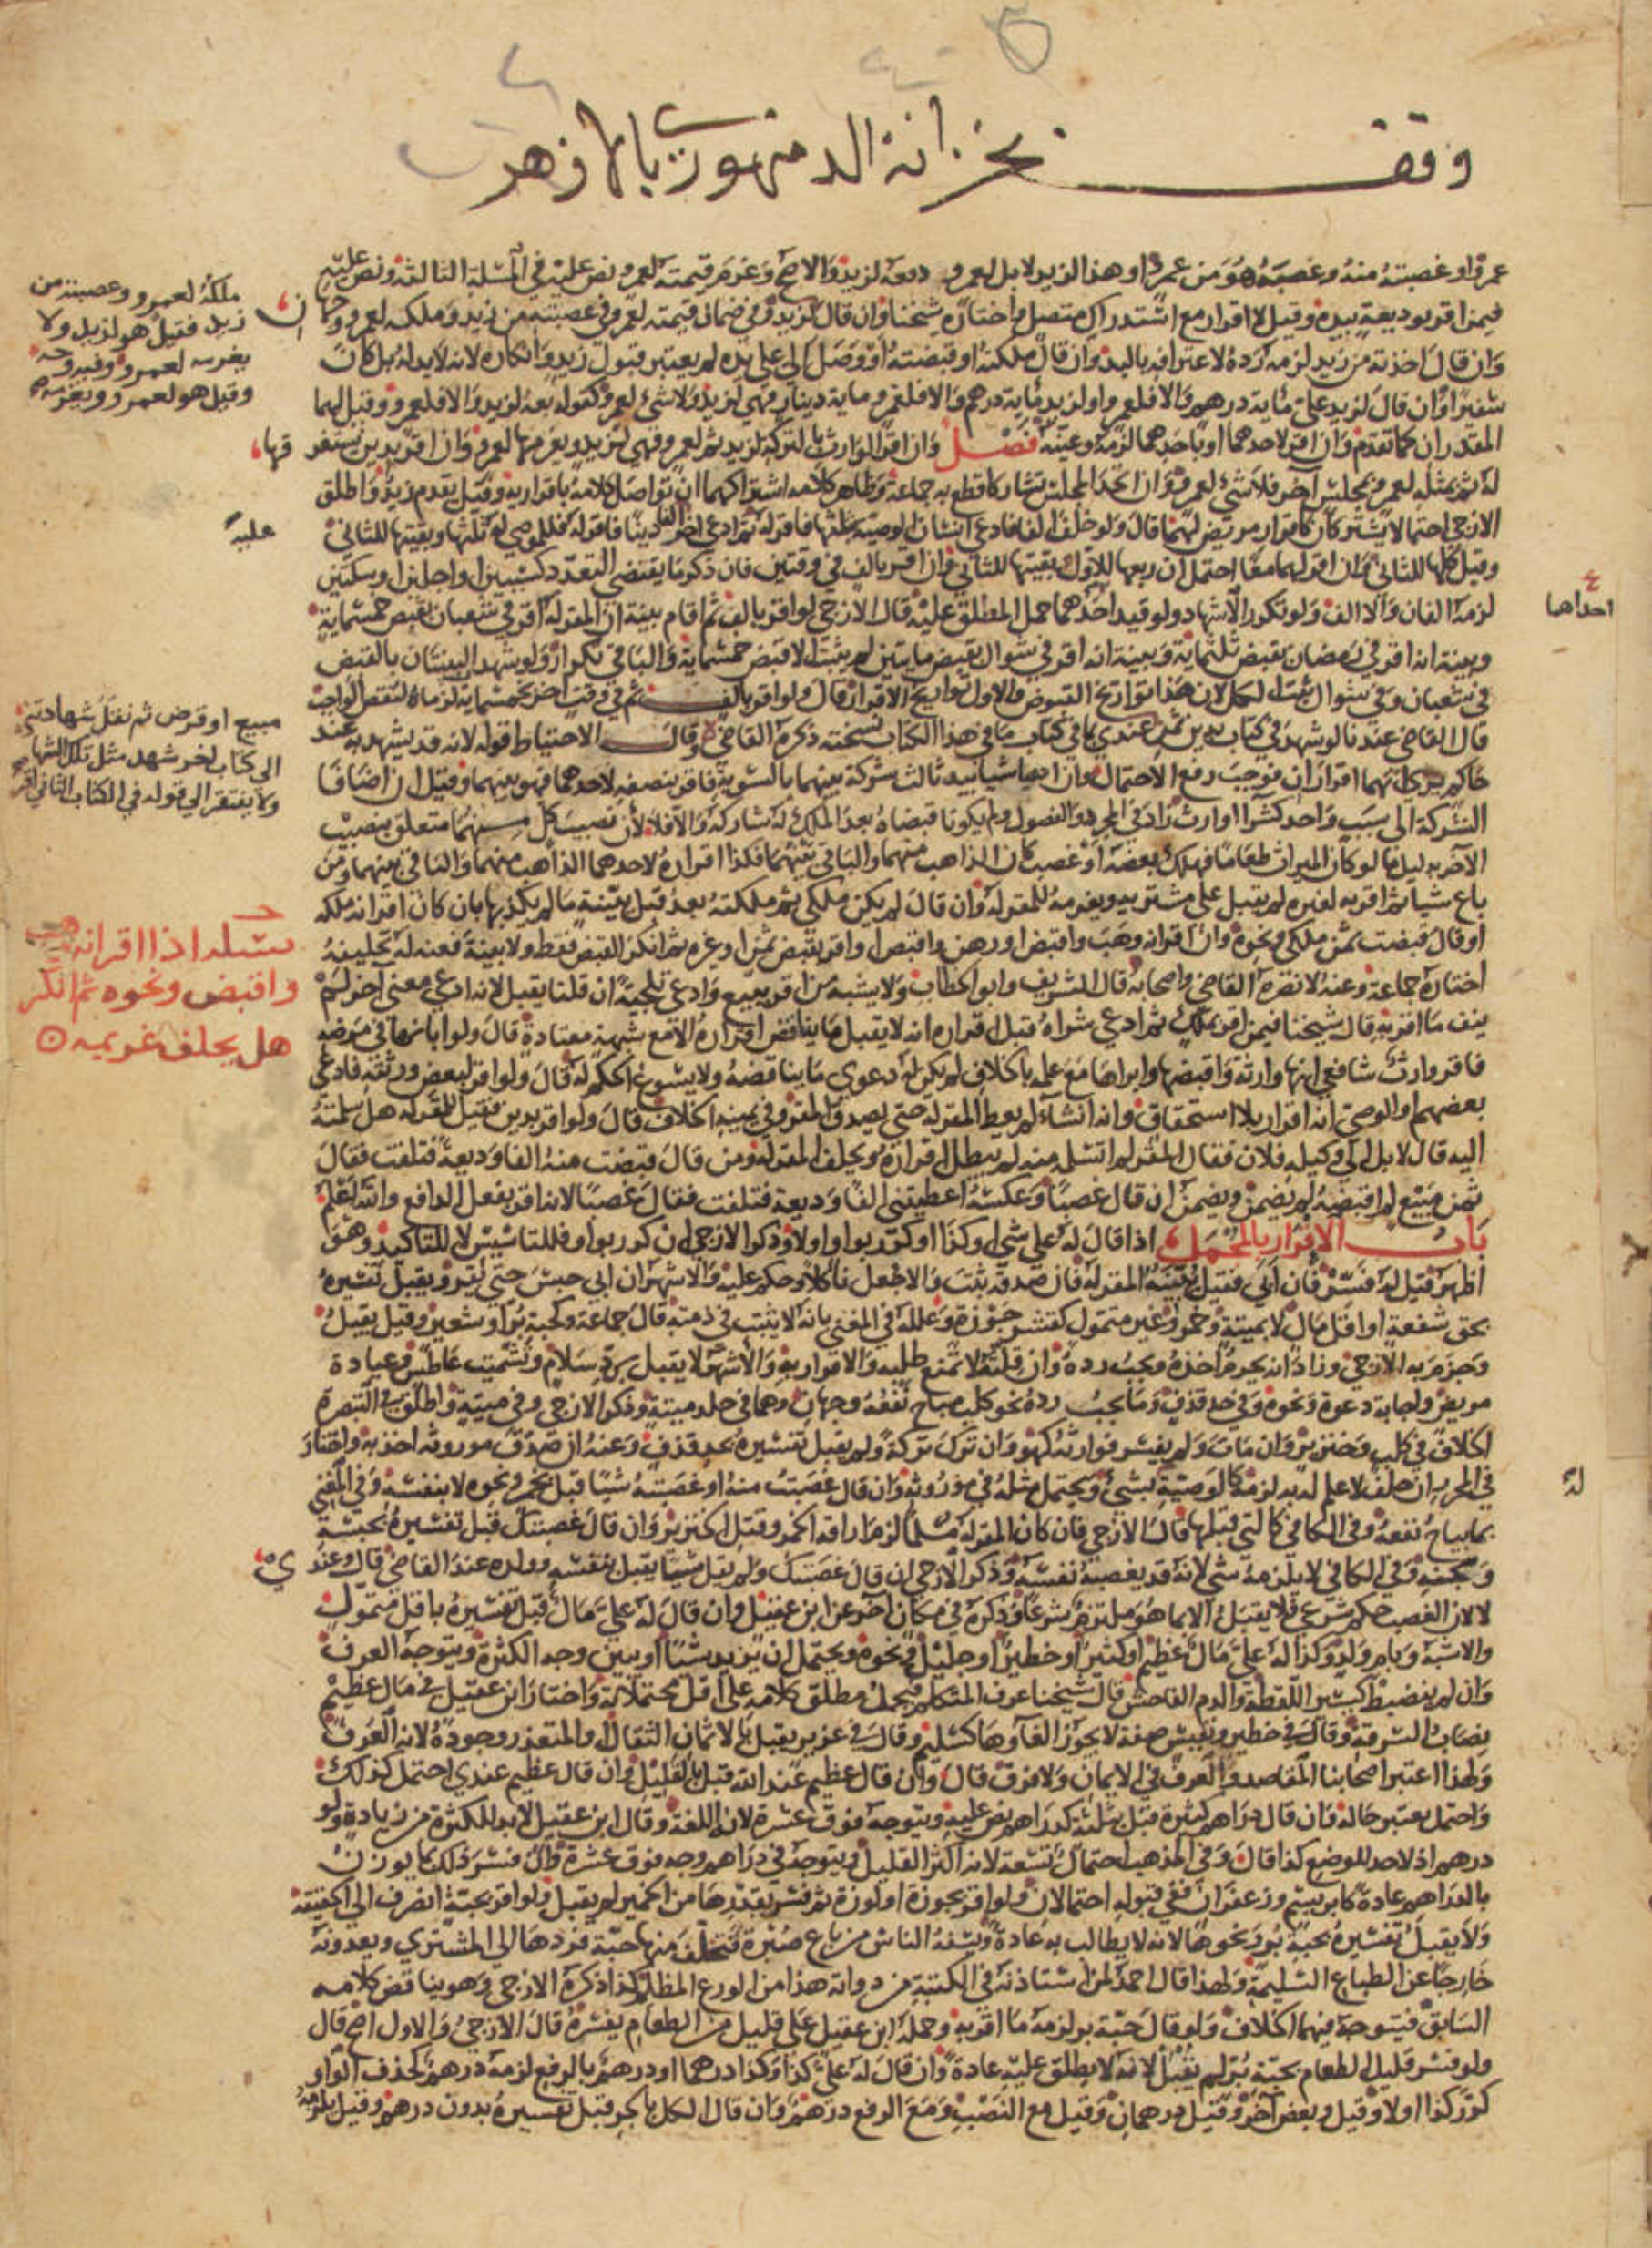 وقف بخزانة الدمنهوري بالازهر
عمرو او غصبته منه وغصبه هو من عمرو او هذا لزيد لا بل لعمرو دفعه لزيد والاصح وغرم قيمته لعمرو ونص عليه في المسئلة الثالثة ونص عليه
فيمن اقر بوديعة بيده وقيل لا اقرار مع استدراك متصل واختاره شيخنا وان قال لزيد وفي ضمان قيمته لعمرو
وان قال اخذته من زيد لزمه رده لاعترافه باليد وان قال ملكته او قبضته او وصل الي على يده لم يعتبر قبول زيد وانكاره لانه لا يد له بل كان
سفيرا وان قال لزيد علي مائة درهم والا فلعمرو او لزيد مائة درهم والا فلعمرو مائة دينار فهي لزيد ولا شيء لعمرو كقوله بعه لزيد والا فلعمرو وقيل لهما
المقدران كما تقدم وان اقر لاحدهما او باحدهما لزمه وعينه فصل وان اقر الوارث بالتركة لزيد ثم لعمرو فهي لزيد ويغرمها لعمرو وان اقر بدين يستغرقها
له ثم بمثله لعمرو بمجلس آخر فلا شيء لعمرو وان اتحد المجلس تشاركا قطع به جماعة وظاهر كلامه اشتراكهما ان تواصل كلامه باقراريه وقيل يقدم زيد واطلق
الازجي احتمالا يشتركان كاقرار مريض لهما قال ولو خلف الفا فادعى انسان الوصية بثلثها فاقر له ثم ادعى اخر الفا دينا فاقر له فللموصى له ثلثها وبقيتها للثاني
وقيل كلها للثاني وان اقر لهما معا احتمل ان ربعها للاول وبقيتها للثاني وان اقر بالف في وقتين فان ذكر ما يقتضي التعدد كسببين او اجلين او سكتين
لزمه الفان والا الف ولو تكرر الاشهاد ولو قيد احدهما حمل المطلق عليه قال الازجي لو اقر بالف ثم اقام بينة ان المقر له اقر في شعبان بقبض خمسمائة
وبينة انه اقر في رمضان بقبض ثلثمائة وبينة انه اقر في شوال بقبض مايتين لم يثبت الا قبض خمسمائة والباقي تكرار ولو شهد البينتان بالقبض
في شعبان وفي شوال ثبت الكل لان هذا تواريخ القبوض والاول تواريخ الاقرار قال ولو اقر بالف ثم في وقت آخر بخمسمائة لزماه لتنقص الواجب
قال القاضي عندنا لو شهد في كتاب بدين ثم عندي بما في كتاب ما في هذا الكتاب نسخته ذكره القاضي وقال الاحتياط قوله لانه قد يشهد به عند
حاكم يرى انهما اقراران فوجب رفع الاحتمال وان ادعيا شيئا بيد ثالث شركة بينهما بالسوية فاقر بنصفه لاحدهما فهو بينهما وقيل ان اضافا
الشركة الى سبب واحد كشرا او ارث زاد في المجرد والفصول ولم يكونا قبضاه بعد الملك له شاركه والا فلا لان نصيب كل منهما متعلق بنصيب
الآخر بدليل ما لو كان الميراث طعاما فهلك بعضه او غصب كان الذاهب منهما والباقي بينهما فكذا اقراره لاحدهما الذاهب منهما والباقي بينهما ومن
باع شيئا ثم اقر به لغيره لم يقبل على مشتريه ويغرمه للمقر له وان قال لم يكن ملكي ثم ملكته بعد قبل ببينة ما لم يكذبها بان كان اقر انه ملكه
او قال قبضت ثمن ملكي ونحوه وان اقر انه وهب واقبض او رهن واقبض او اقر بقبض ثمن او غيره ثم انكر القبض فقط ولا بينة فعنه له تحليفه
اختاره جماعة وعنه لا نصره القاضي واصحابه قال الشريف وابو الخطاب ولا يشبه من اقر ببيع وادعى تلجئة ان قلنا يقبل لانه ادعى معنى آخر لم
ينف ما اقر به قال شيخنا فيمن اقر بملك ثم ادعى شراه قبل اقراره انه لا يقبل ما يناقض اقراره الا مع شبهة معتادة قال ولو ابانها في مرضه
فاقر وارث شافعي انها وارثة واقبضها وابراها مع علمه بالخلاف لم يكن له دعوى ما يناقضه ولا يسوغ الحكم له قال ولو اقر لبعض ورثته فادعى
بعضهم او الوصي انه اقرار بلا استحقاق وانه انشاء لم يعط المقر له حتى يصدق المقر وفي يمينه الخلاف قال ولو اقر بدين فقيل للمقر له هل سلمته
اليه قال لا بل الى وكيله فلان فقال المقر لم اتسلم منه لم يبطل اقراره ويحلف المقر له ومن قال قبضت منه الفا وديعة فتلفت فقال
ثمن مبيع لم اقبضه لم يضمن ويضمن ان قال غصبا وعكسه اعطيتني الفا وديعة فتلفت فقال غصبا لانه اقر بفعل الدافع والله اعلم
باب الاقرار بالمجمل اذا قال له علي شيء او كذا او كرر بواو او لا وذكر الازجي ان كرر بواو فللتاسيس لا للتاكيد وهو
اظهر قيل له فسر فان ابى فقيل يبينه المقر له فان صدقه ثبت والا جعل ناكلا وحكم عليه والاشهر ان ابى حبس حتى يفسر ويقبل تفسيره
بحق شفعة او اقل مال لا بميتة وخمر وغير متمول كقشر جوزة وعلله في المغني بانه لا يثبت في ذمته قال جماعة وكحبة بر او شعير وقيل يقبل
وجزم به الازجي وزاد انه يحرم اخذه ويجب رده وان قلته لا تمنع طلبه والاقرار به والاشهر لا يقبل برد سلام وتشميت عاطس وعيادة
مريض واجابة دعوة ونحوه وفي حد قذف وما يجب رده نحو كلب مباح نفعه وجهان وهما في جلد ميتة وذكر الازجي وفي ميتة واطلق في التبصرة
الخلاف في كلب وخنزير وان مات ولم يفسر فوارثه كهو وان ترك تركة ولم يقبل تفسيره بحد قذف وعنه ان صدق موروثه اخذ به واختار
في المحرر ان حلف لا علم له به لزمه كالوصية بشيء ويحتمل مثله في موروثه وان قال غصبت منه او غصبته شيئا قبل بخمر ونحوه لا بنفسه وفي المغني
بما يباح نفعه وفي الكافي كالتي قبلها قال الازجي فان كان المقر له مسلما لزمه اراقة الخمر وقتل الخنزير وان قال غصبتك قبل تفسيره بحبسه
وسجنه وفي الكافي لا يلزمه شيء لانه قد يغصبه نفسه وذكر الازجي ان قال غصبتك ولم يقل شيئا يقبل بنفسه وولده عند القاضي قال وعندي
لا لان الغصب حكم شرعي فلا يقبل الا بما هو ملتزم شرعا وذكره في مكان آخر عن ابن عقيل وان قال له علي مال قبل تفسيره باقل متمول
والاشبه وبام ولد وكذا له علي مال عظيم او كثير او خطير او جليل ونحوه ويحتمل ان يزيد شيئا او يبين وجه الكثرة ويتوجه العرف
وان لم ينضبط كيسير اللقطة والدم الفاحش قال شيخنا عرف المتكلم فيحمل مطلق كلامه على اقل محتملاته واختار ابن عقيل في مال عظيم
نصاب السرقة وقال في خطير ونفيس صفة لا يجوز الغاوها كسليم وقال في عزيز يقبل بالاثمان الثقال او المتعذر وجوده لانه العرف
ولهذا اعتبر اصحابنا المقاصد والعرف في الايمان ولا فرق قال وان قال عظيم عند الله قبل بالقليل وان قال عظيم عندي احتمل كذلك
واحتمل يعتبر حاله وان قال دراهم كثيرة قبل بثلثة كدراهم نص عليه ويتوجه فوق عشرة لانه اللغة وقال ابن عقيل لا بد للكثرة من زيادة ولو
درهم اذ لا حد للوضع كذا قال وفي المذهب احتمال تسعة لانه اكثر القليل ويتوجه في دراهم وجه فوق عشرة وان فسر ذلك بما يوزن
بالدراهم عادة كابريسم وزعفران ففي قبوله احتمالان ولو اقر بجوزة او لوزة ثم فسر بقدرها من الخمير لم يقبل ولو اقر بحبة انصرف الى الحقيقة
ولا يقبل تفسيره بحبة بر ونحوها لانه لا يطالب به عادة ويسفه الناس من باع صبرة فتخلف منها حبة فردها الى المشتري ويعدونه
خارجا عن الطباع السليمة ولهذا قال احمد لمن استاذنه في الكتبة من دواته هذا من الورع المظلم كذا ذكره الازجي وهو يناقض كلامه
السابق فيتوجه فيهما الخلاف ولو قال حبة بر لزمه ما اقر به وحمله ابن عقيل على قليل من الطعام يفسره قال الازجي والاول اصح قال
ولو فسر قليل الطعام بحبة بر لم يقبل لانه لا يطلق عليه عادة وان قال له علي كذا وكذا درهما او درهم بالرفع لزمه درهم كحذف الواو
كرر كذا او لا وقيل وبعض آخر وقيل درهمان وقيل مع النصب ومع الرفع درهم وان قال الكل بالجر قبل تفسيره بدون درهم وقيل يلزمه
ملكه لعمرو وغصبته من
زيد فقيل هو لزيد ولا
يغرمه لعمرو وفيه وجه
وقيل هو لعمرو ويغرمه
عليه
احداهما
مبيع او قرض ثم نقل شهادته
الى كتاب آخر شهد مثل تلك الشهادة
ولا يفتقر الى قوله في الكتاب الثاني اقر
مسئلة اذا اقر انه وهب
واقبض ونحوه ثم انكر
هل يحلف غريمه
له